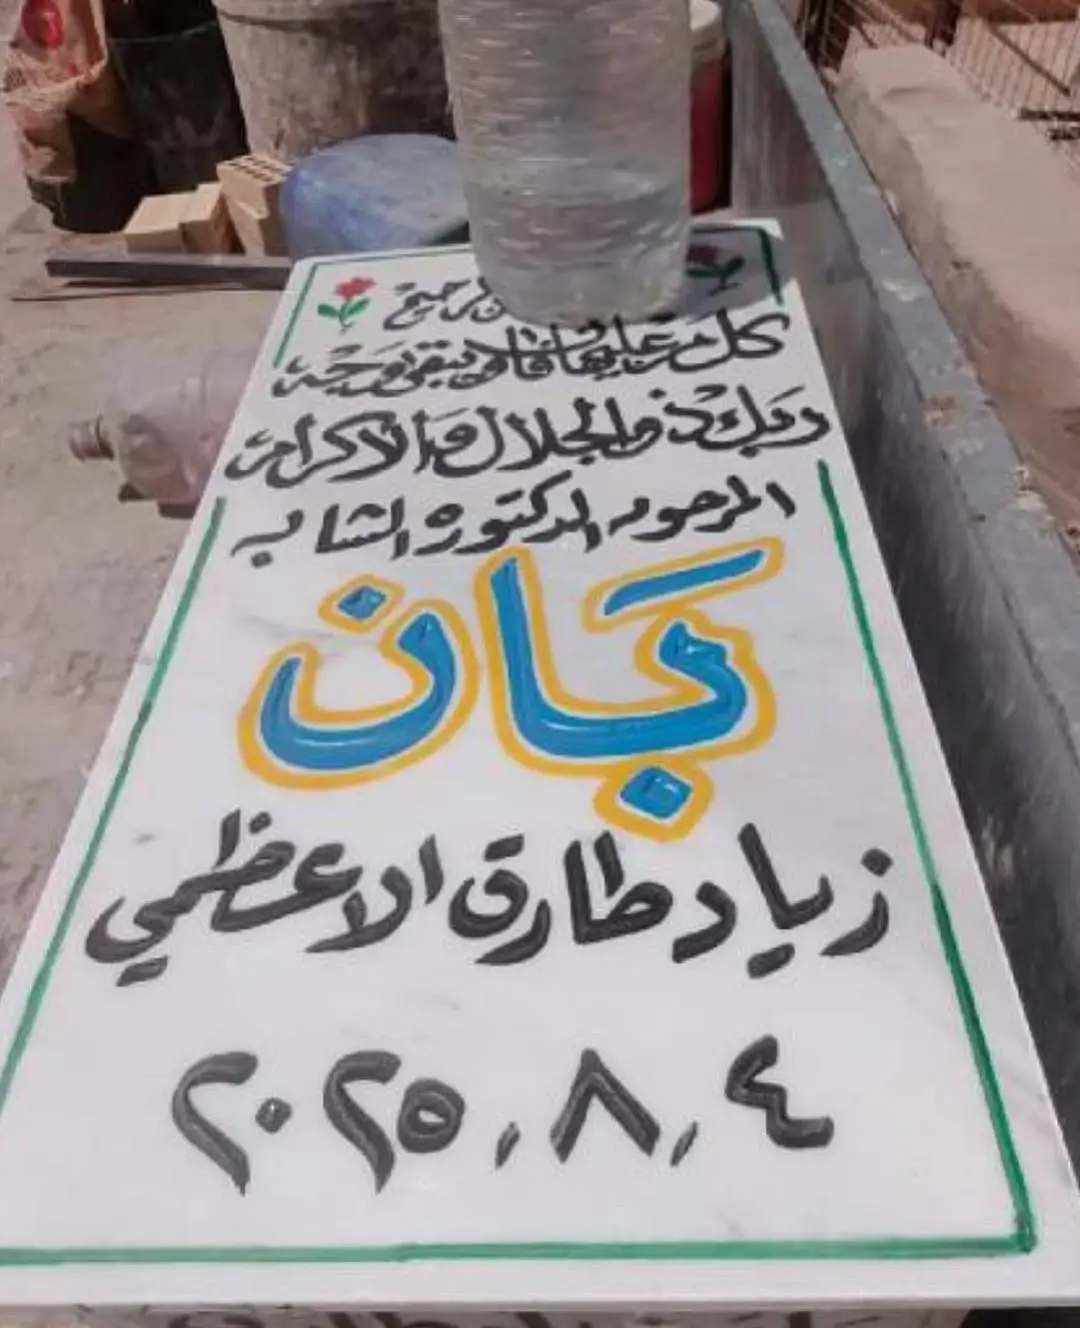 الرحيم
كل من عليها فان ويبقى وجه
ربك ذو الجلال والاكرام
المرحومه الدكتوره الشابه
بَان
زياد طارق الاعظمي
٢٠٢٥،٨،٤